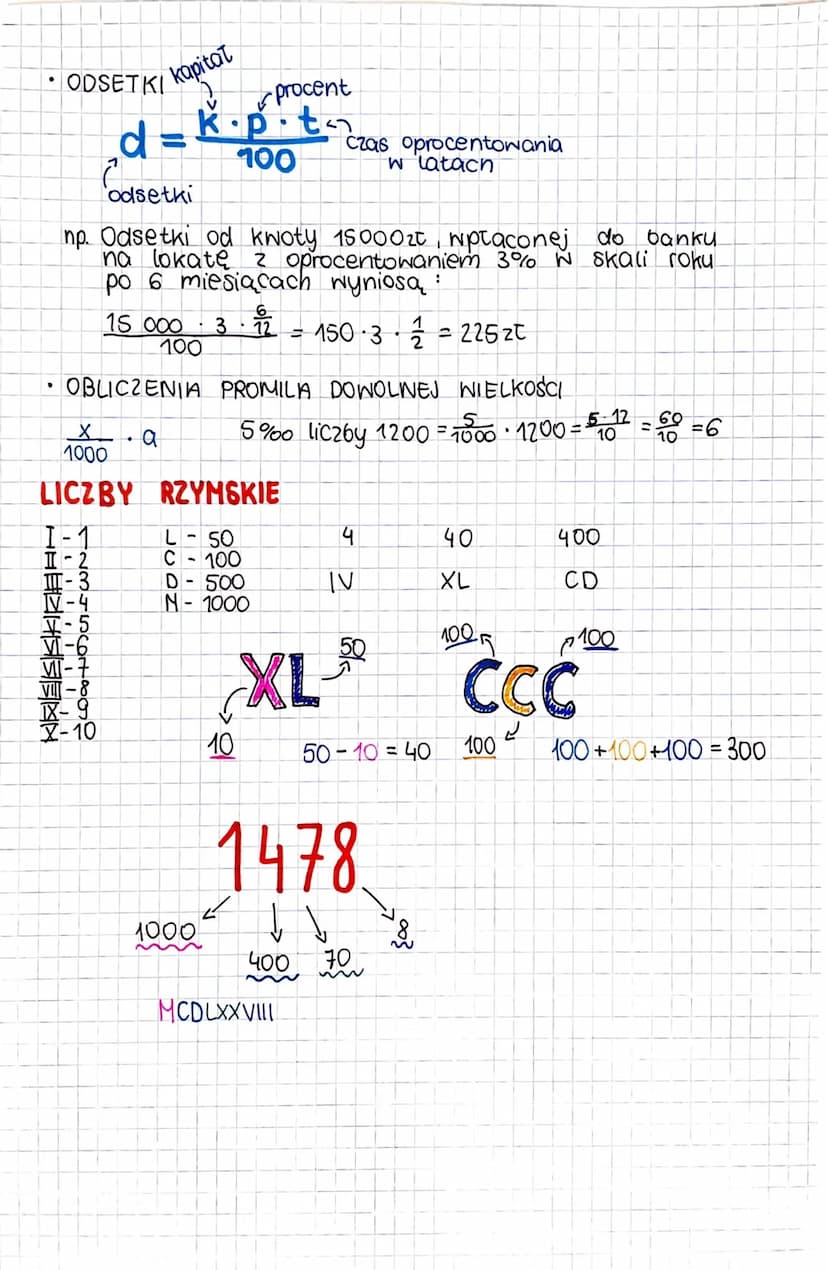 • ODSETKI
kapitał
procent
d = k · p · t / 100
czas oprocentowania
w latach
odsetki
np. Odsetki od kwoty 15000zł, wpłaconej do banku
na lokatę z oprocentowaniem 3% w skali roku
po 6 miesiącach wyniosą:
15 000 · 3 · 6/12 / 100 = 150 · 3 · 1/2 = 225zł
• OBLICZENIA PROMILA DOWOLNEJ WIELKOŚCI
x/1000 · a 5‰ liczby 1200 = 5/1000 · 1200 = 5·12/10 = 60/10 = 6
LICZBY RZYMSKIE
I - 1
II - 2
III - 3
IV - 4
V - 5
VI - 6
VII - 7
VIII - 8
IX - 9
X - 10
L - 50
C - 100
D - 500
M - 1000
4 40 400
IV XL CD
XL
50
10
50 - 10 = 40
100
100
CCC
100
100 + 100 + 100 = 300
1478
1000
400
70
8
MCDLXXVIII